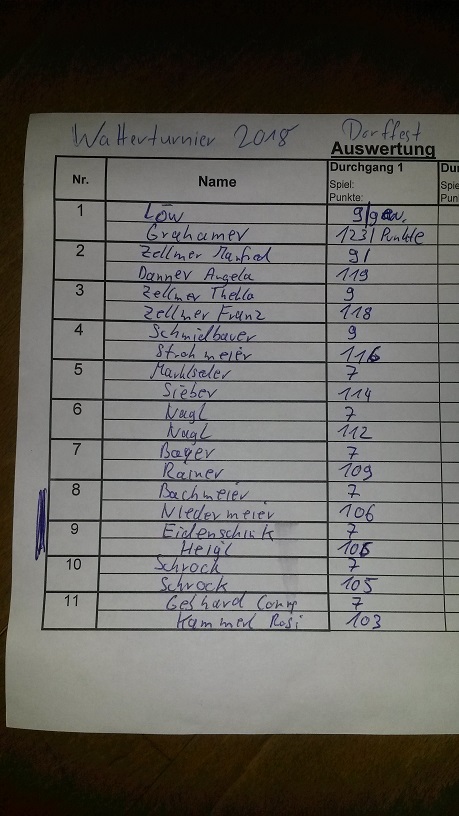 Watterturnier 2018 Dorffest
Auswertung
Nr. Name Durchgang 1 Du
Spiel: Spie
Punkte: Pun
1 Löw 9/gew.
Grahamer 123/Punkte
2 Zellmer Manfred 9/
Danner Angela 119
3 Zellmer Thekla 9
Zellmer Franz 118
4 Schmidbauer 9
Strohmeier 116
5 7
Sieber 114
6 Nagl 7
Nagl 112
7 Bayer 7
Rainer 109
8 Bachmeier 7
Niedermeier 106
9 Eidenschink 7
Heigl
10 Schrock 7
Schrock 105
11 Gerhard Conny 7
Kammerl Rosi 103